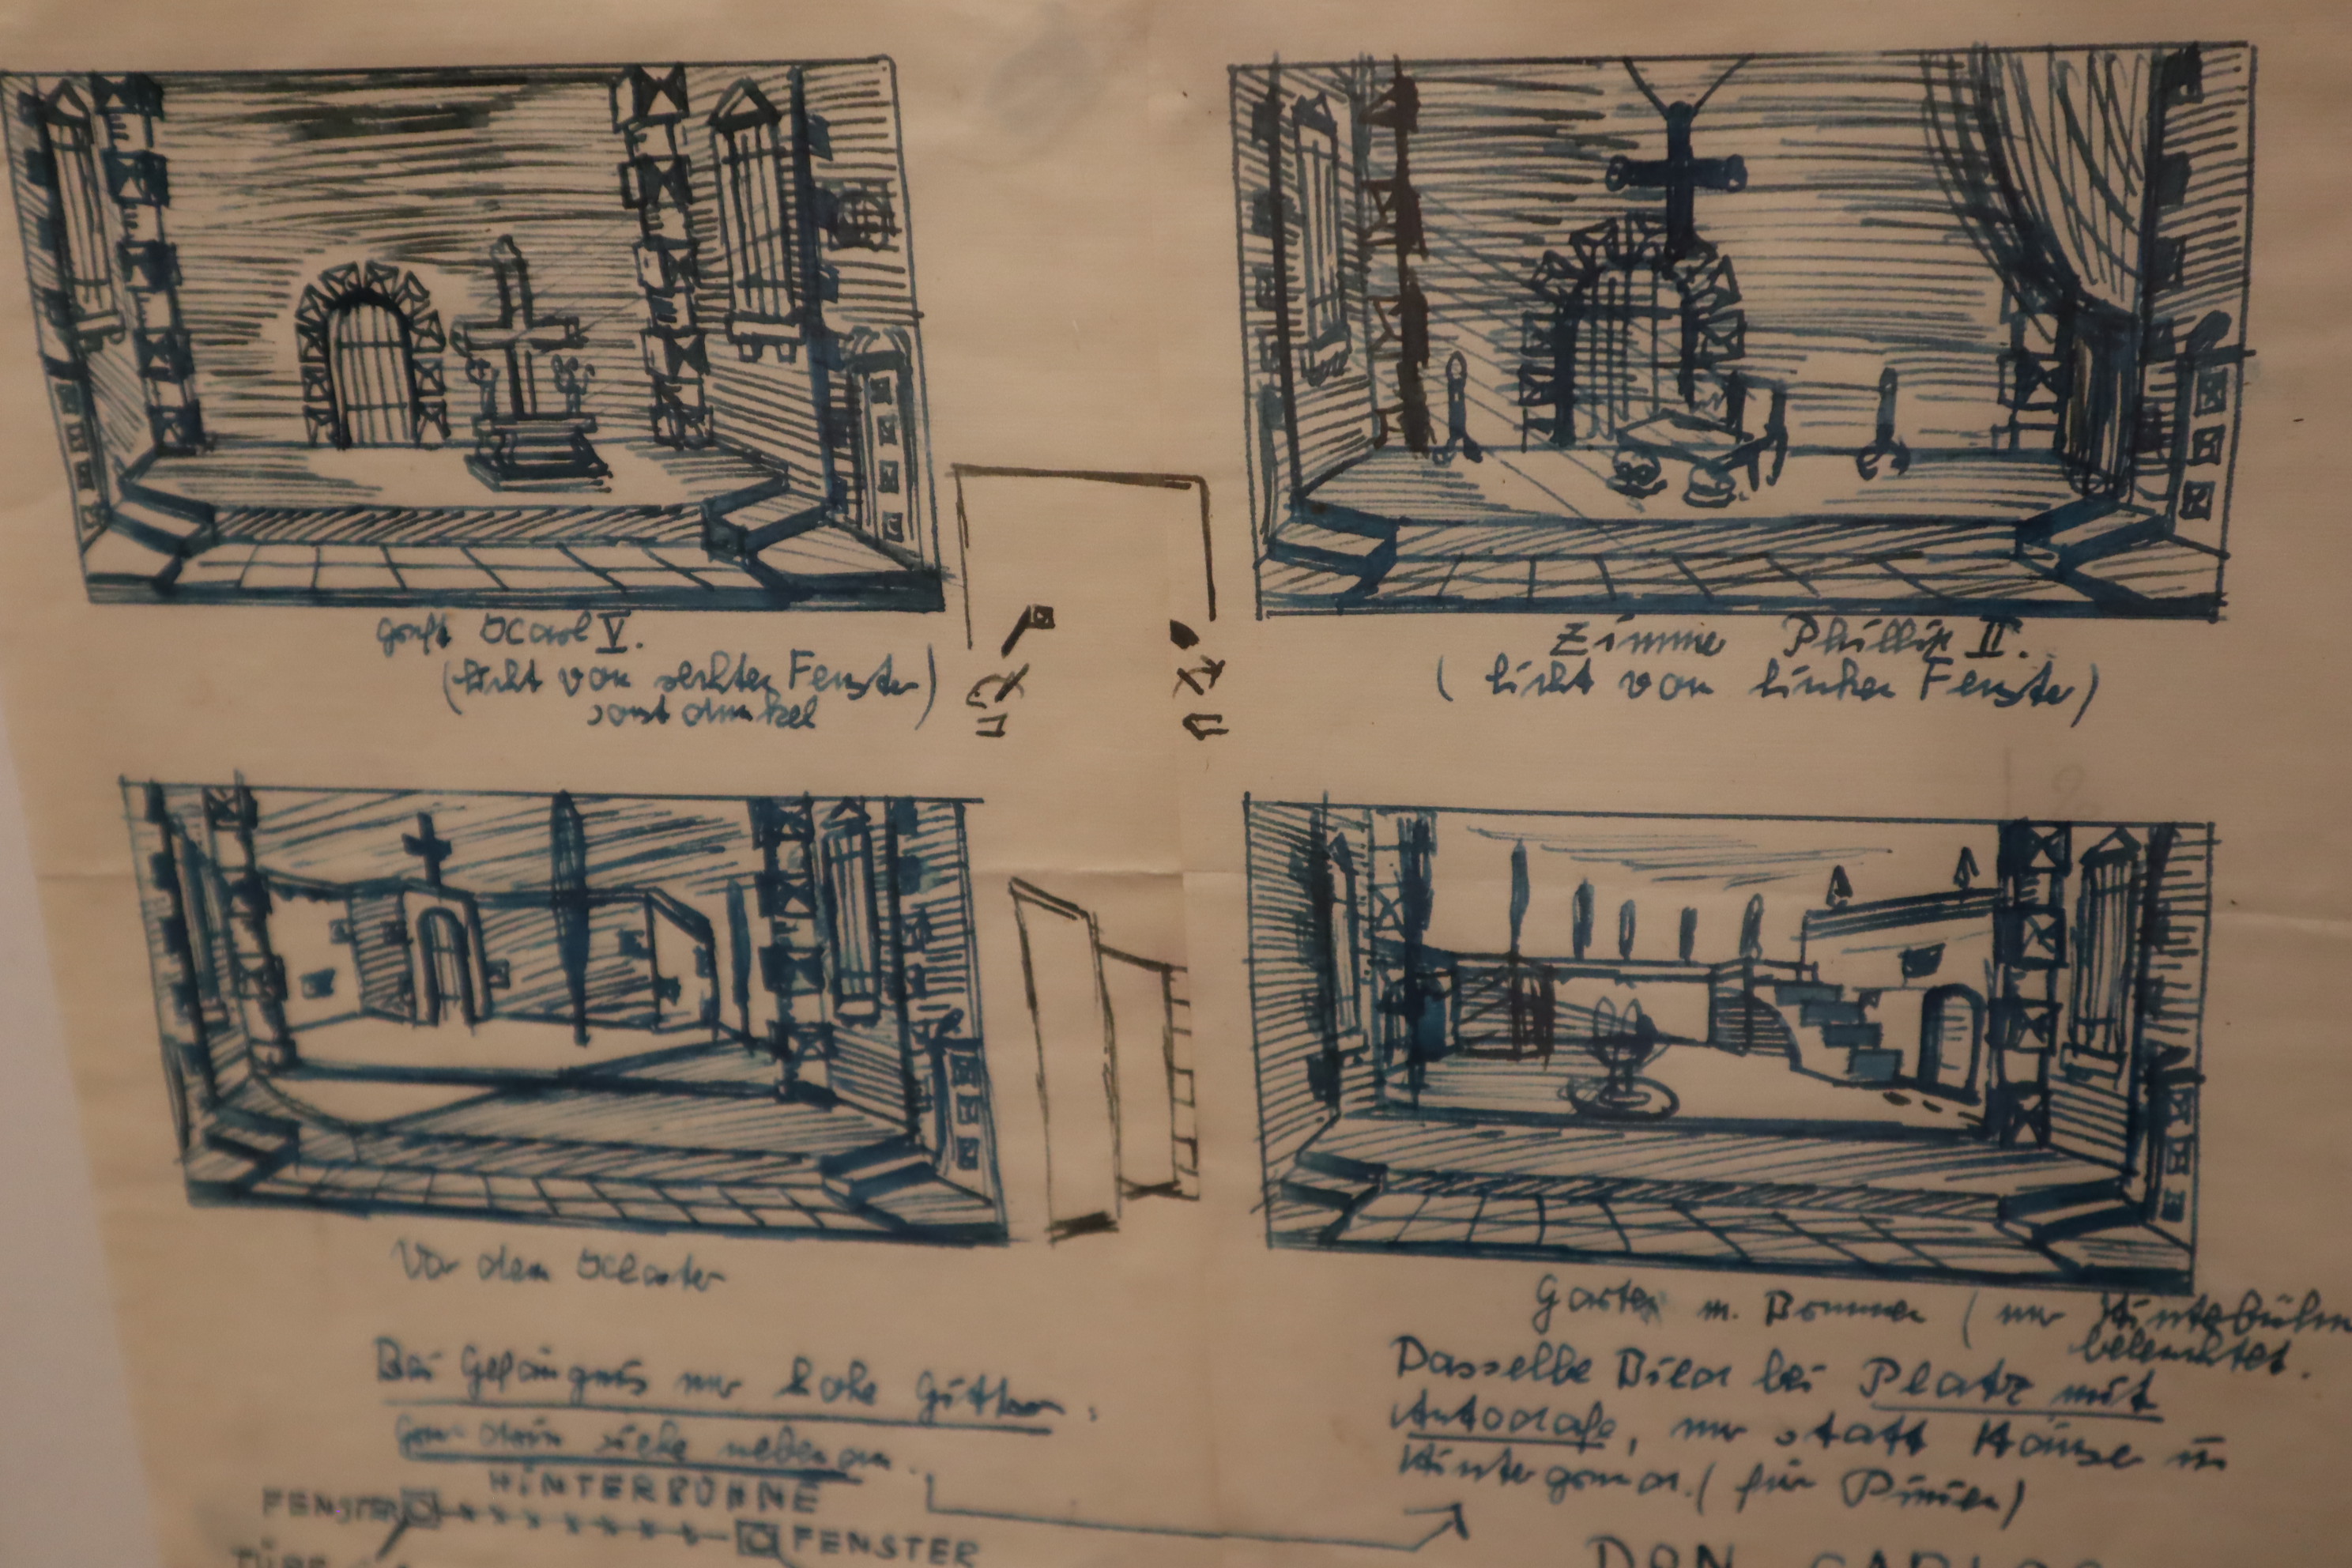 Gruft Karl V.
(Licht von rechten Fenster)
sonst dunkel
Zimmer Phillip II.
(Licht von linken Fenster)
Vor dem Kloster
Bei Gefängnis nur hohe Gitter.
siehe nebenan.
Garten m. Brunnen (nur Hinterbühne
beleuchtet.
Dasselbe Bild bei Platz mit
Autodafe, nur statt Häuser im
Hintergrund. (für Pinien)
HINTERBÜHNE
FENSTER
FENSTER
TÜRE
DON CARLOS